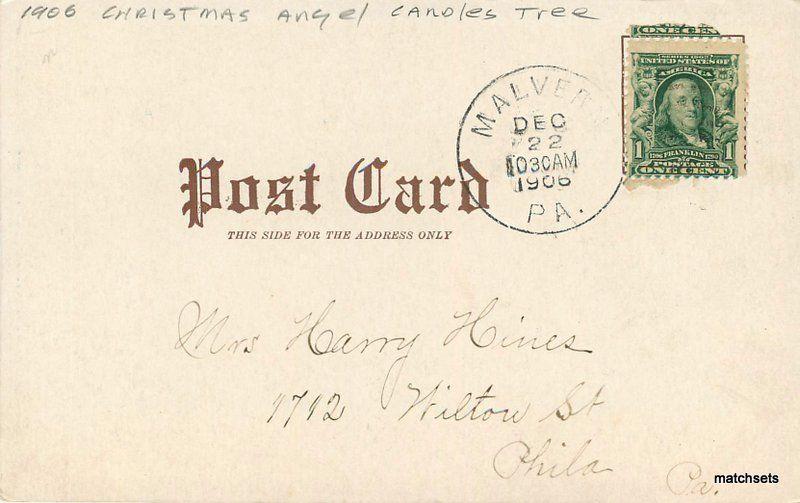 1906 CHRISTMAS Angel CANDles Tree
ONE CENT
SERIES 1902
UNITED STATES OF
AMERICA
1 1706 FRANKLIN 1790 1
POSTAGE
ONE CENT
MALVERN
DEC
22
1030AM
1906
PA.
Post Card
THIS SIDE FOR THE ADDRESS ONLY
Mrs Harry Hines
1712 Wilton St
Phila
Pa.
matchsets